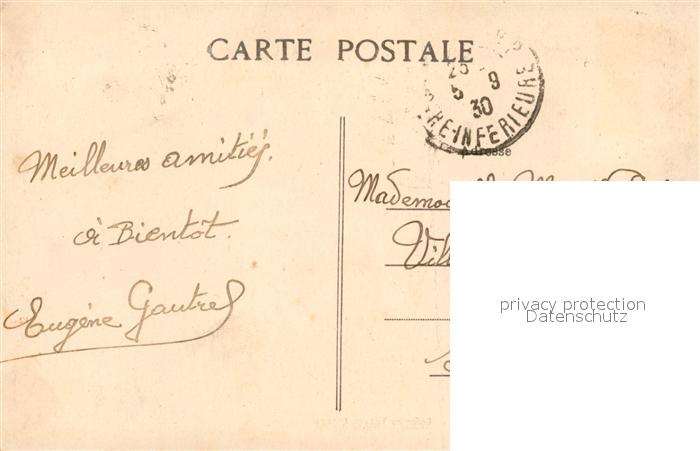 CARTE POSTALE
25
5 9
30
RE-INFERIEURE
Adresse
Meilleures amitiés.
à Bientot.
Eugène Gautrel
privacy protection
Datenschutz